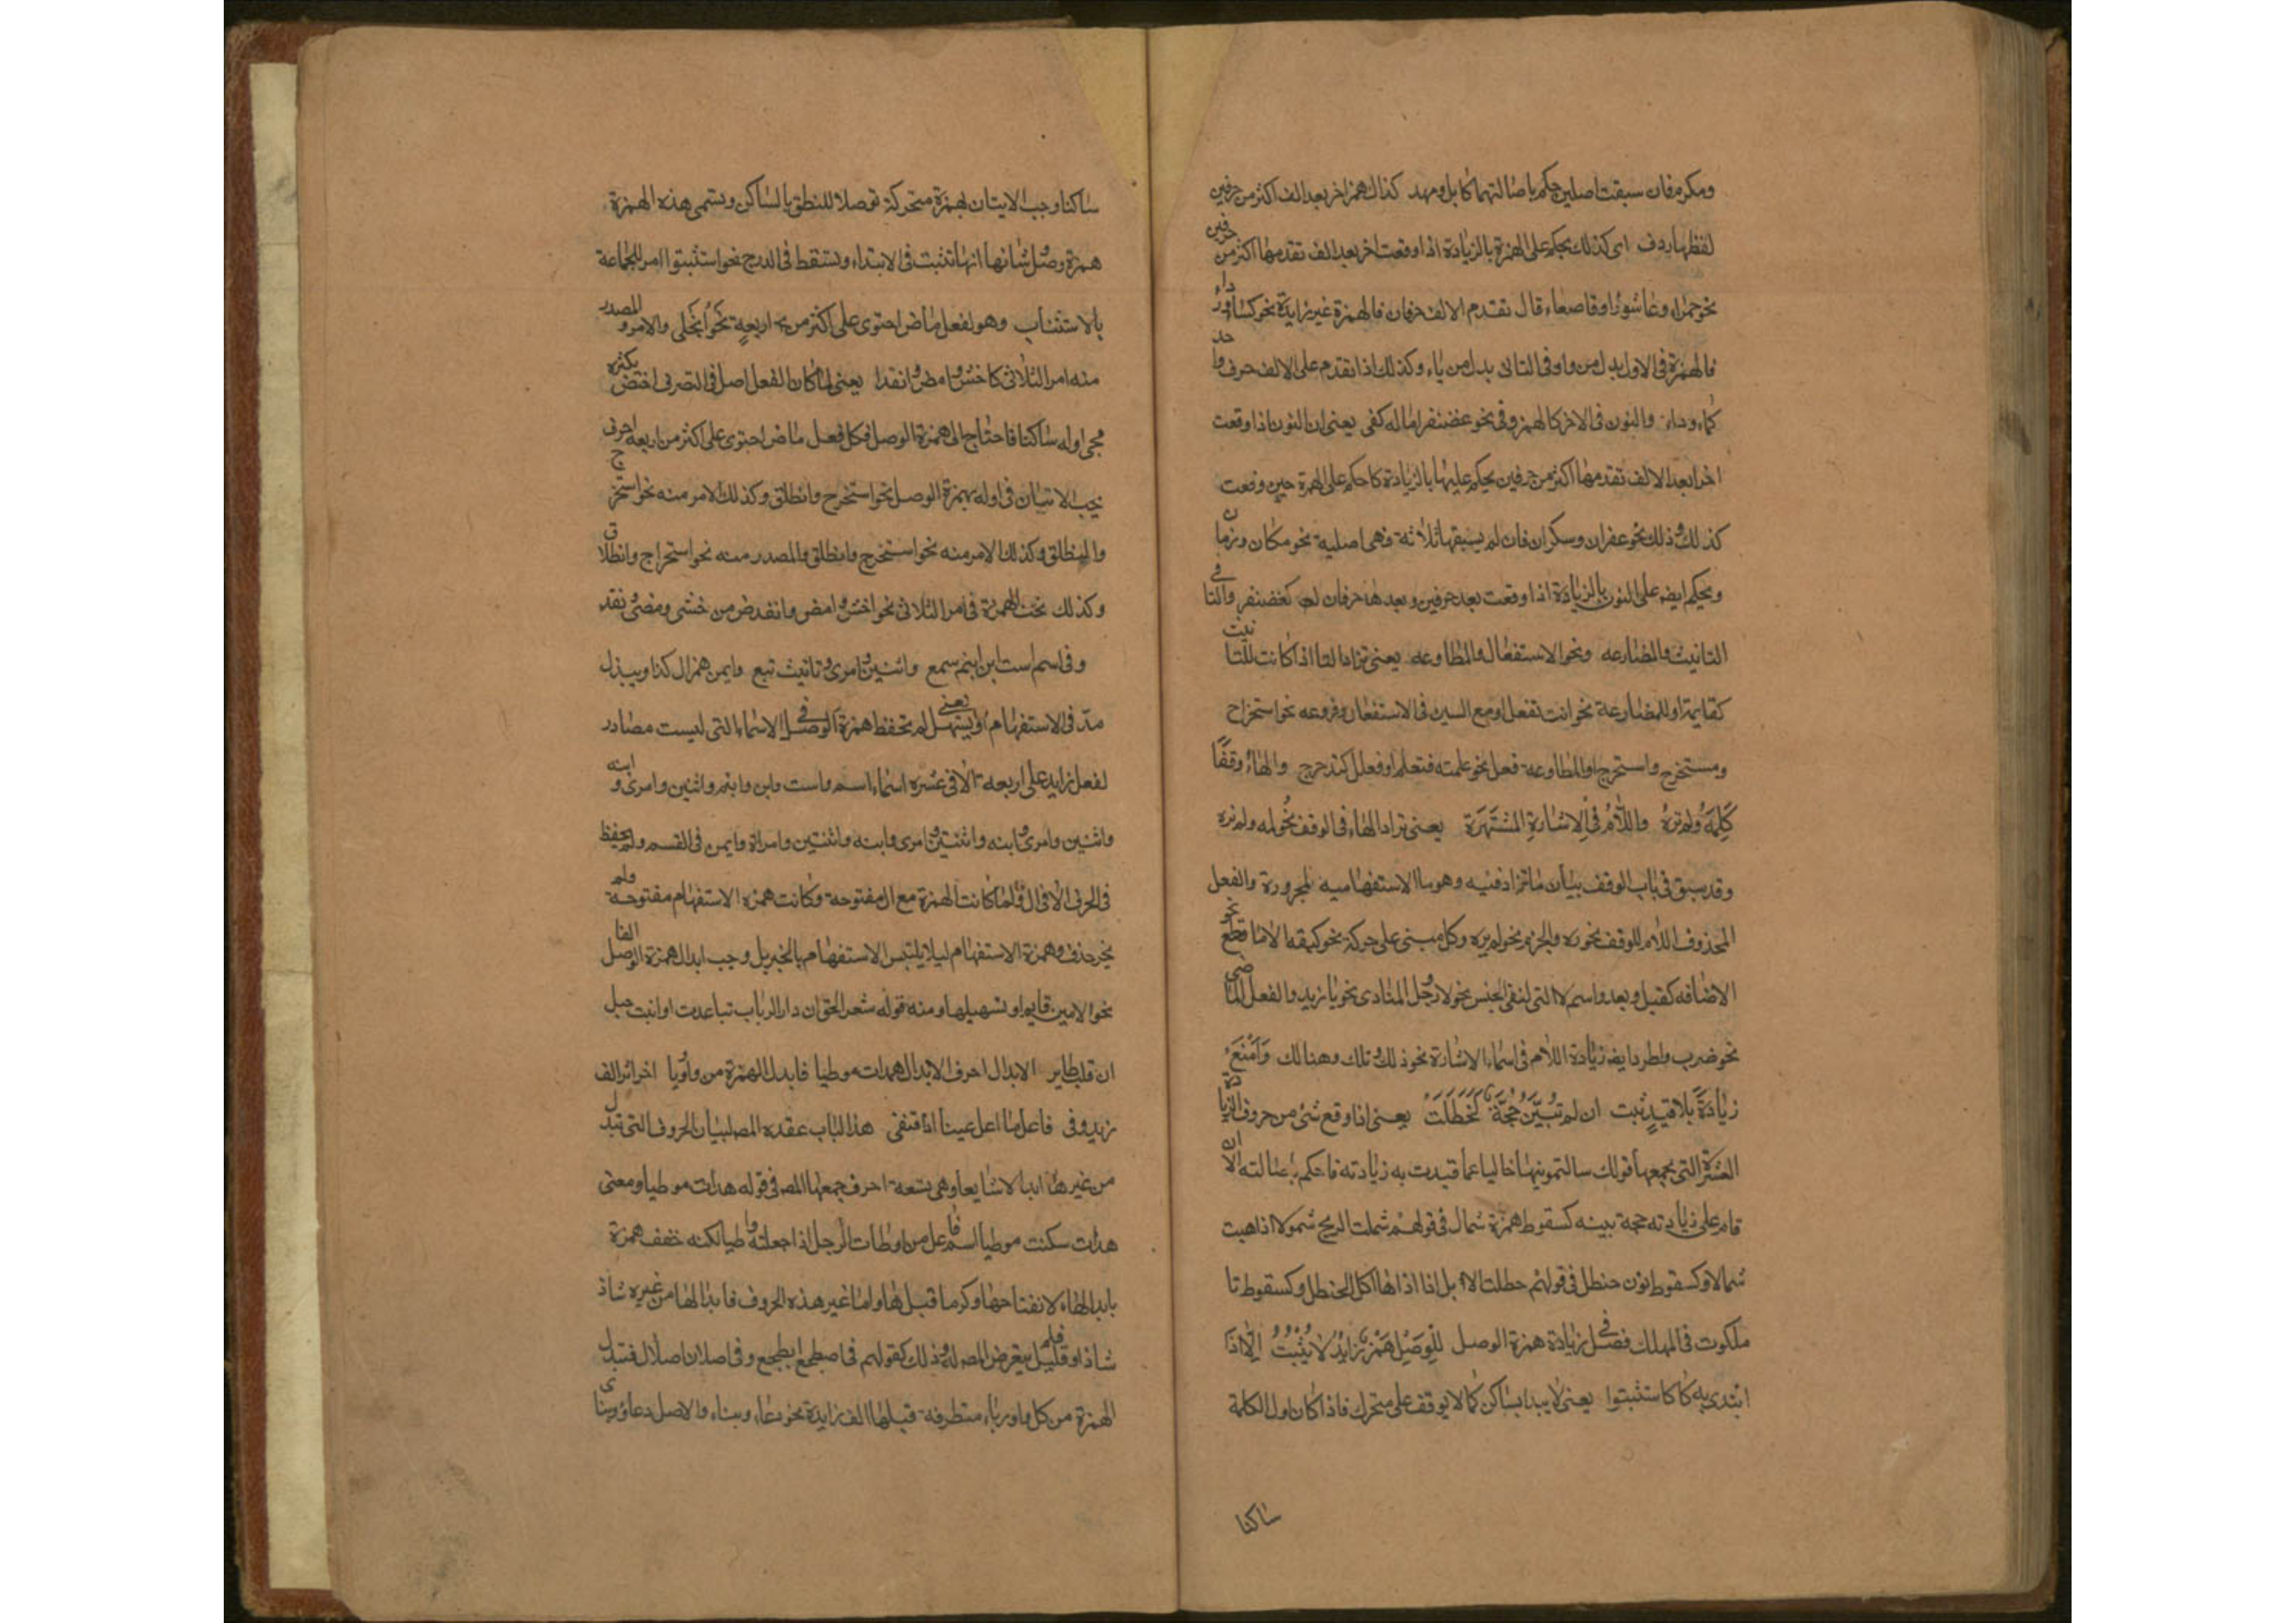 ومكرم فان سبقت اصلين حكم باصالتهما كابل ومهد كذاك همز اخر بعد الف اكثر من حرفين
لفظها ردف اى كذلك يحكم على الهمزة بالزيادة اذا وقعت اخر بعد الف تقدمها اكثر من حرفين
نحو حمراء وعاشوراء وقاصعاء قال تقدم الالف حرفان فالهمزة غير زايدة نحو كساء ورداء
فالهمزة فى الاول بدل من واو وفى الثانى بدل من ياء وكذلك اذا تقدم على الالف حرف واحد
كماء وداء والنون فى الاخر كالهمز وفى نحو غضنفر اماله كفى يعنى ان النون اذا وقعت
اخرا بعد الالف تقدمها اكثر من حرفين يحكم عليها بالزيادة كما حكم على الهمزة حين وقعت
كذلك وذلك نحو عفران وسكران فان لم يسبقها ثلاثة فهى اصلية نحو مكان وزمان
ويحكم ايضه على النون بالزيادة اذا وقعت بعد حرفين وبعدها حرفان كغضنفر والتا فى
التانيث والمضارعه ونحو الاستفعال والمطاوعه يعنى تزاد التا اذا كانت للتانيث
كقايمة او للمضارعة نحو انت تفعل او مع السين فى الاستفعال وفروعه نحو استخراج
ومستخرج واستخرج او المطاوعة فعل نحو علمته فتعلم او فعلل كتدحرج والهاء وقفا
كلمه ولم تره واللام فى الاشارة المشتهرة يعنى تزاد الهاء فى الوقف نحو لمه ولم تره
وقد سبق فى باب الوقف بيان ما تزاد فيه وهو ما الاستفهاميه المجرورة والفعل
المحذوف اللام للوقف نحو ره والجزم نحو لم يره وكل مبنى على حركة نحو كيفه الا ما قطع عن
الاضافه كقبل وبعد واسم لا التى لنفى الجنس نحو لا رجل والمنادى نحو يا زيد والفعل الماضى
نحو ضرب واطرد ايضه زيادة اللام فى اسماء الاشارة نحو ذلك وتلك وهنالك وامنع
زيادة بلا قيد ثبت ان لم تبين حجة كحظلت يعنى اذا وقع شئ من حروف الزيادة
العشرة التى يجمعها قولك سالتمونيها خاليا عما قيدت به زيادته فاحكم باصالته الا ان
قام على زيادته حجة بينه كسقوط همزة شمال فى قولهم شملت الريح شمولا اذا هبت
شمالا وكسقوط نون حنظل فى قولهم حظلت الابل اذا اذاها اكل الحنظل وكسقوط تا
ملكوت فى الملك فصل فى زيادة همزة الوصل للوصل همز زايد لا يثبت الا اذا
ابتدى به كاستثبتوا يعنى لا يبدا بساكن كما لا يوقف على متحرك فاذا كان اول الكلمة
ساكنا
ساكنا وجب الاتيان بهمزة متحركة توصلا للنطق بالساكن وتسمى هذه الهمزة
همزة وصل شانها انها تثبت فى الابتداء وتسقط فى الدرج نحو استثبتوا امر للجماعة
بالاستثبات وهو لفعل ماض احتوى على اكثر من اربعة نحو انجلى والامر والمصدر
منه امر الثلاثى كاخش وامض وانفذا يعنى لما كان الفعل اصل فى التصرف اختص بكثره
مجى اوله ساكنا فاحتاج الى همزة الوصل فكل فعل ماض احتوى على اكثر من اربعه احرف
يجب الاتيان فى اوله بهمزة الوصل نحو استخرج وانطلق وكذلك الامر منه نحو استخرج
وانطلق وكذلك الامر منه نحو استخرج وانطلق والمصدر منه نحو استخراج وانطلاق
وكذلك تجب الهمزة فى امر الثلاثى نحو اخش وامض وانفذ من خشى ومضى ونفذ
وفى اسم است ابن ابنم سمع واثنين وامرئ وتانيث تبع وايمن همز ال كذا ويبذل
مد فى الاستفهام او يسهل يعنى لم تحفظ همزة الوصل فى الاسماء التى ليست مصادر
لفعل زايد على اربعه الا فى عشره اسماء اسم واست وابن وابنم واثنين وامرئ وابنه
واثنين وامرئ وابنه واثنتين وامرى وابنه واثنتين وامراة وايمن فى القسم ولم يحفظ
فى الحرف الا فى ال ولما كانت الهمزة مع ال مفتوحة وكانت همزه الاستفهام مفتوحة ولم
يجز حذف همزة الاستفهام ليلا يلتبس الاستفهام بالخبر بل وجب ابدال همزة الوصل الفا
نحو الامين قايم او تسهيلها ومنه قوله شعر الحق ان دار الرباب تباعدت او انبت حبل
ان قلبك طاير الابدال احرف الابدال هدات موطيا فابدل الهمزة من واو ويا اخرا اثر الف
زيد وفى فاعل ما اعل عينا ذا اقتفى هذا الباب عقده المصه لبيان الحروف التى تبدل
من غيرها ابدالا شايعا وهى تسعة احرف جمعها المصه فى قوله هدات موطيا ومعنى
هدات سكنت موطيا اسم فاعل من اوطات الرجل اذا جعلته واطيا لكنه خفف همزة
بابدالها ياء لانفتاحها وكسر ما قبلها واما غير هذه الحروف فابدالها من غيره شاذ
شاذ او قليل فلم يتعرض المصه له وذلك كقولهم فى اضطجع الطجع وفى اصلان اصلال فتبدل
الهمزة من كل واو وياء متطرفه قبلها الف زايدة نحو دعاء وبناء والاصل دعاو وبناى